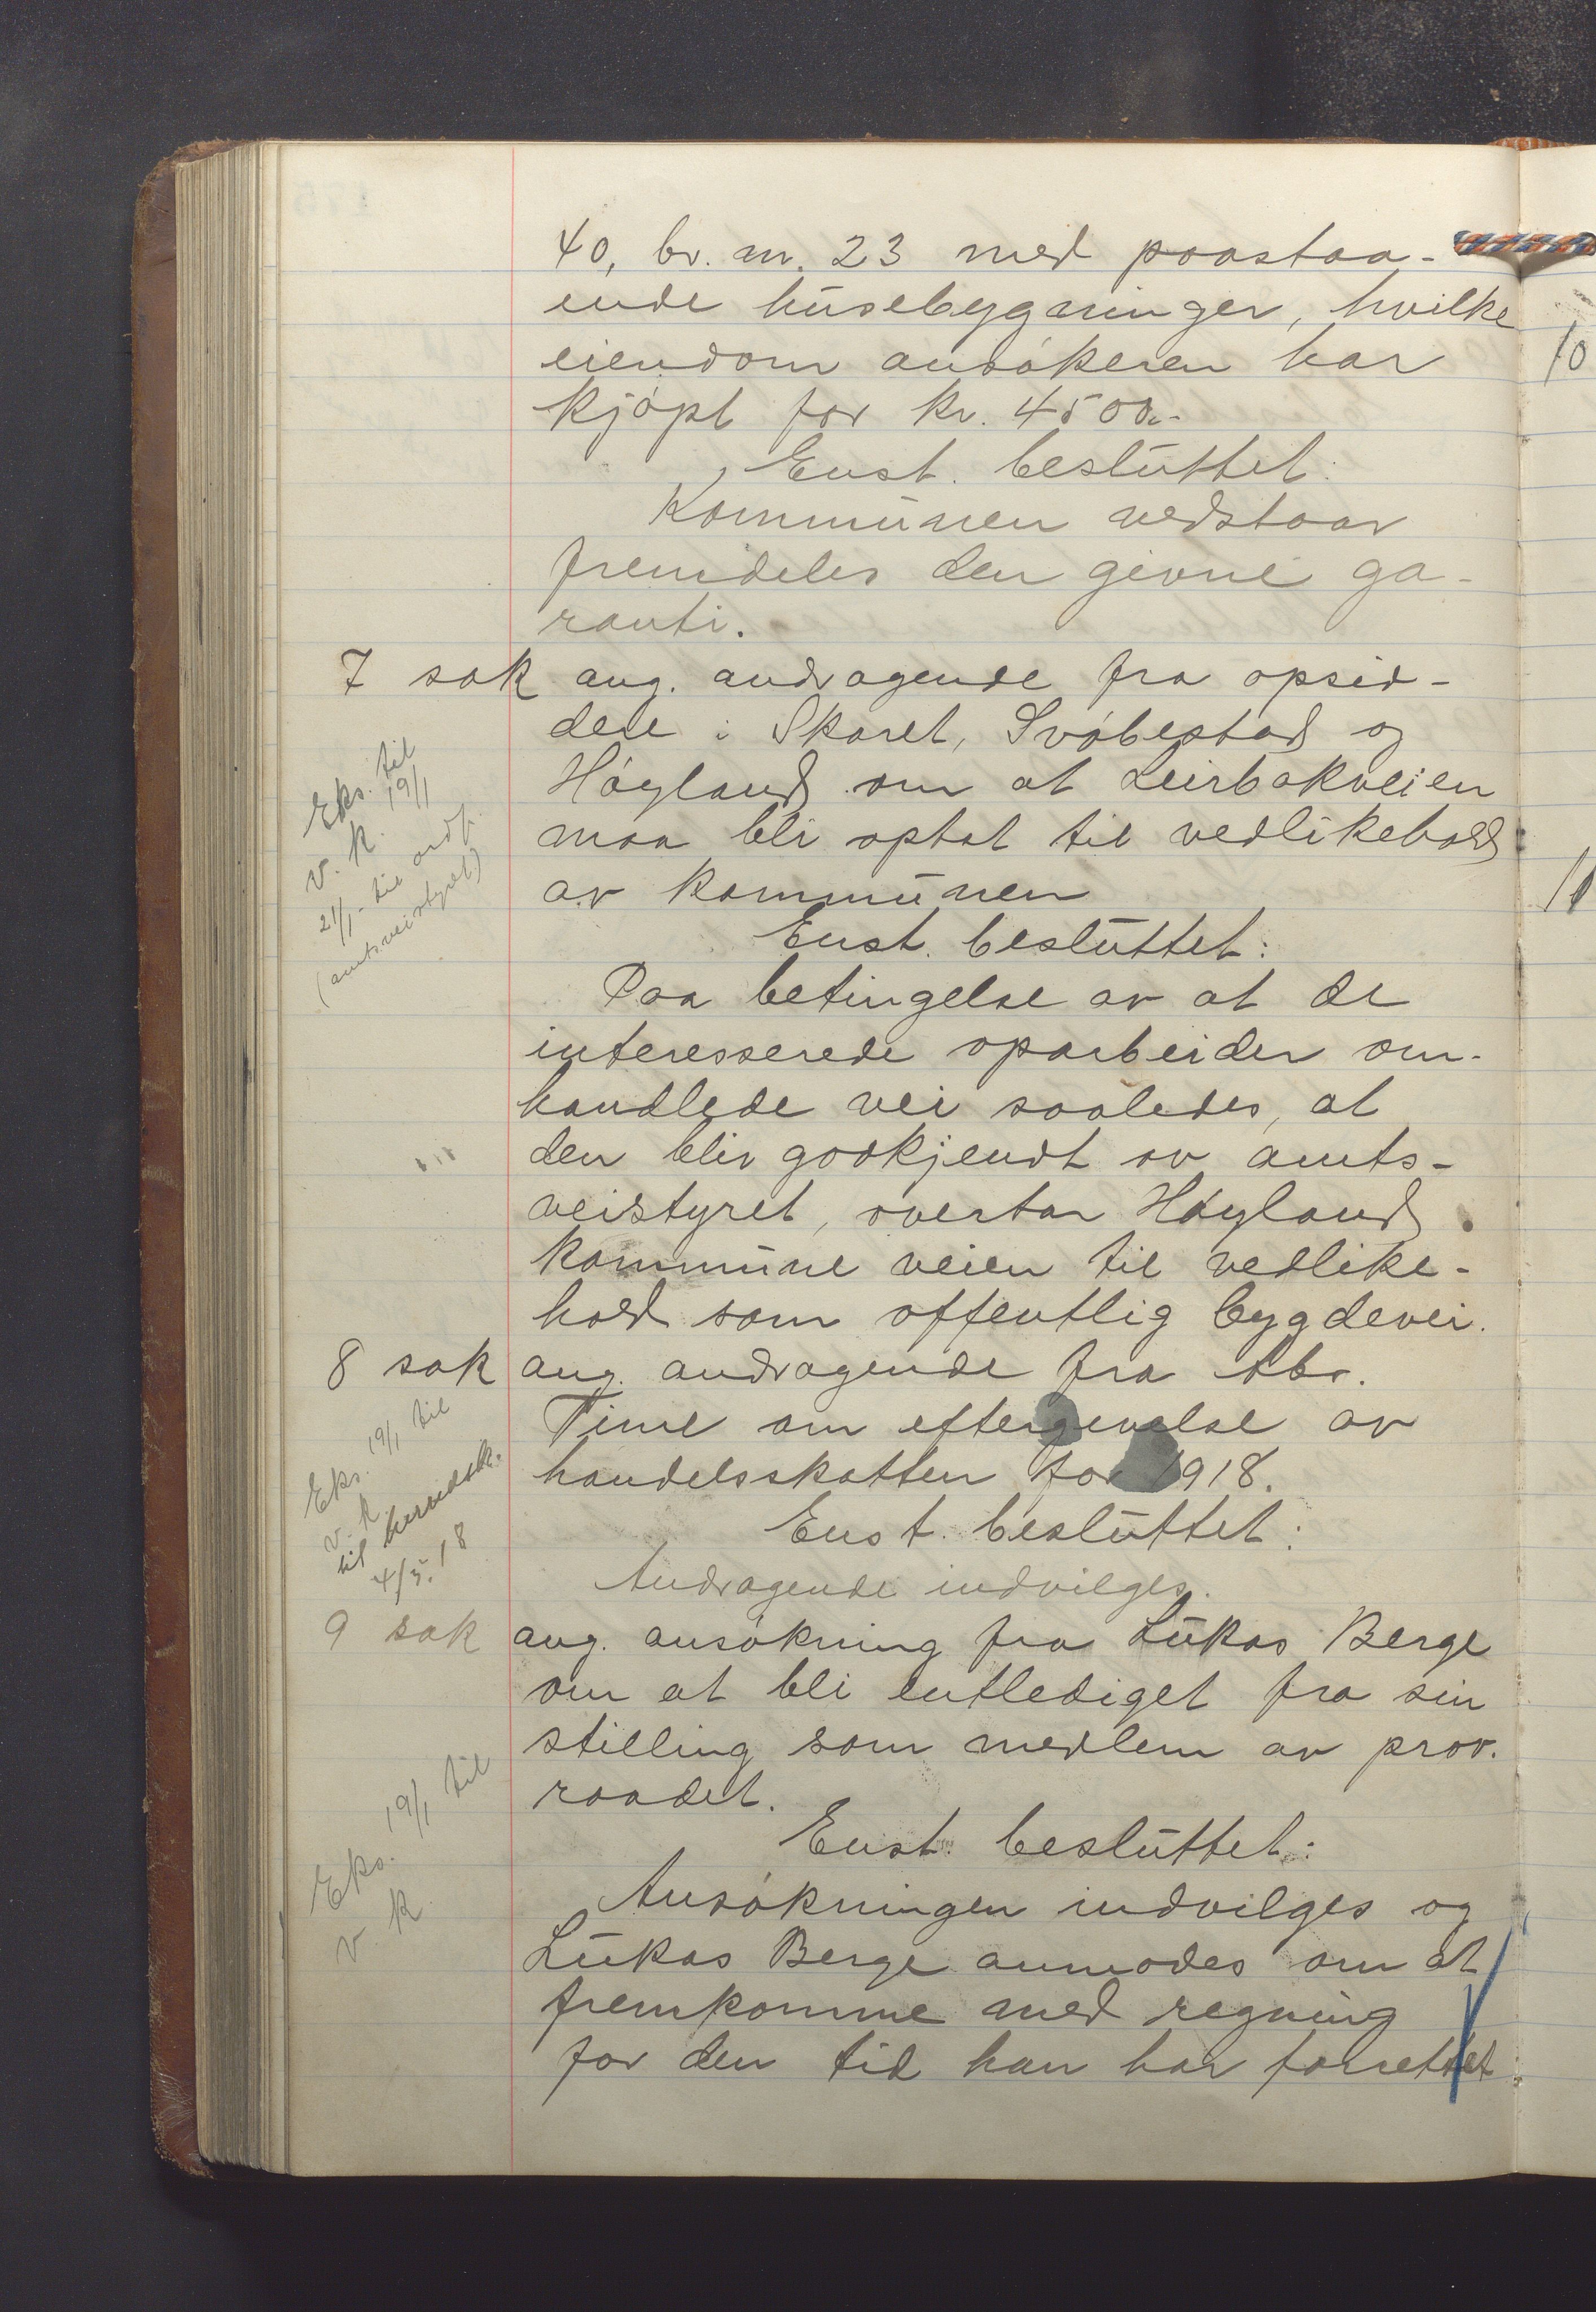 40, br. nr. 23 med paastaa-
ende husebygninger, hvilke
eiendom ansökeren har
kjöpt for kr. 4500.-
Enst. besluttet:
Kommunen vedstaar
fremdeles den givne ga-
ranti.
7 sak ang. andragende fra opsid-
dere i Skaret, Svöbestad og
Höyland om at Leirbakveien
maa bli optat til vedlikehold
av kommunen
Eks. til
v. k. 19/1
21/1 - til ordf.
(amtsveistyret)
Enst. besluttet:
Paa betingelse av at de
interesserede oparbeider om-
handlede vei saaledes, at
den blir godkjendt av amts-
veistyret, overtar Höyland
kommune veien til vedlike-
hold som offentlig bygdevei.
8 sak ang. andragende fra Abr.
Time om eftergivelse av
handelsskatten for 1918.
Eks. 19/1 til
v. k.
til herredsk.
4/5. 18
Enst. besluttet:
Andragende indvilges.
9 sak ang. ansökning fra Lukas Berge
om at bli entlediget fra sin
stilling som medlem av prov.
raadet.
Eks. 19/1 til
v. k.
Enst. besluttet:
Ansökningen indvilges og
Lukas Berge anmodes om at
fremkomme med regning
for den tid han har forrettet
10
11